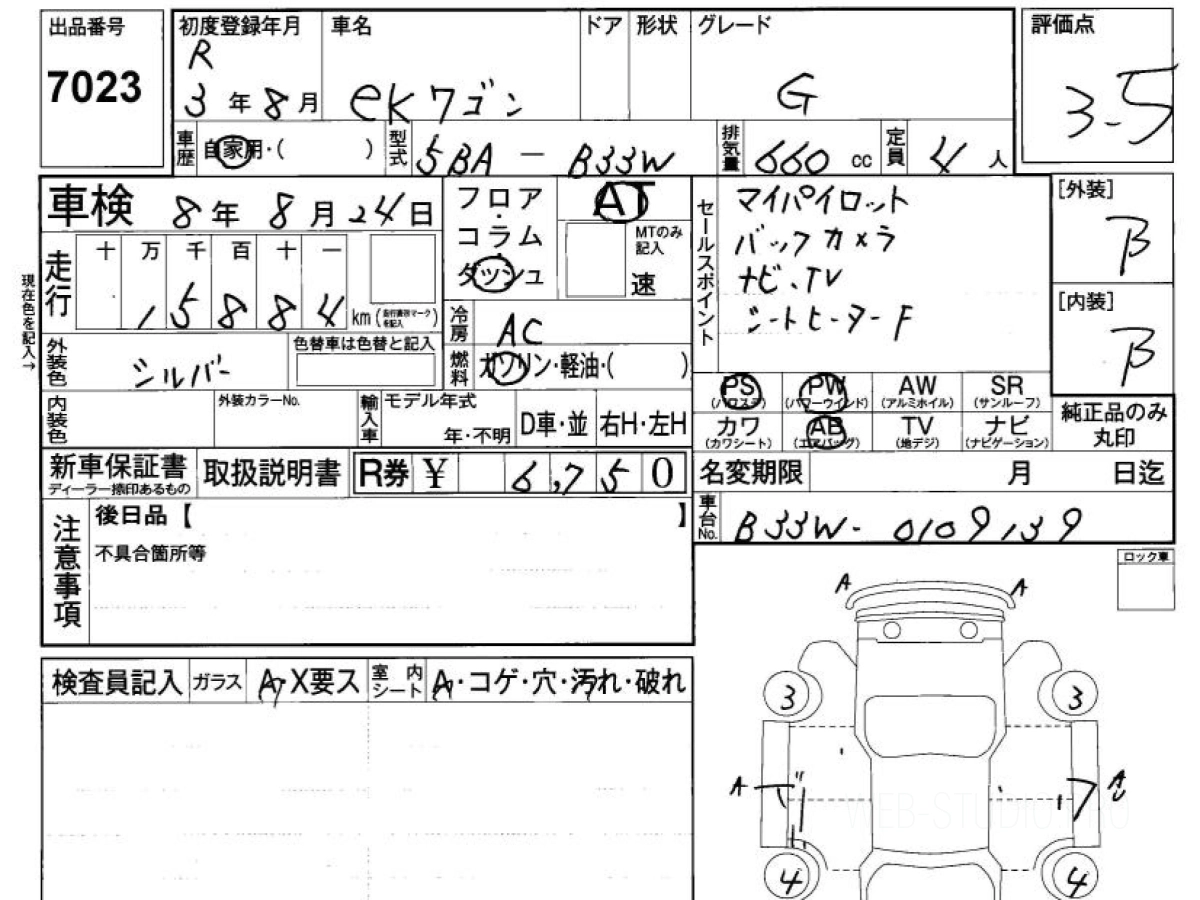 出品番号 初度登録年月 車名 ドア 形状 グレード 評価点
7023 R 3年 8月 eKワゴン G 3.5
車歴 自家用・( ) 型式 5BA - B33W 排気量 660 cc 定員 4 人
車検 8年 8月 24日
フロア・コラム・ダッシュ AT MTのみ記入 速
セールスポイント マイパイロット
バックカメラ
ナビ、TV
シートヒーターF
[外装] B
[内装] B
現在色を記入→
走行 十 万 千 百 十 一
1 5 8 8 4 km
冷房 AC
外装色 シルバー 色替車は色替と記入
燃料 ガソリン・軽油・( )
PS (パワステ) PW (パワーウインド) AW (アルミホイル) SR (サンルーフ)
カワ (カワシート) AB (エアバッグ) TV (地デジ) ナビ (ナビゲーション)
純正品のみ丸印
内装色 外装カラーNo. 輸入車 モデル年式 年・不明 D車・並 右H・左H
新車保証書 ディーラー捺印あるもの 取扱説明書 R券 ¥ 6,750
名変期限 月 日迄
車台No. B33W-0109139
注意事項 後日品【 】
不具合箇所等
ロック車
検査員記入 ガラス A・X要ス 室内シート A・コゲ・穴・汚れ・破れ
A A
3 3
A A
WEB-STUDIO.PRO
4 4